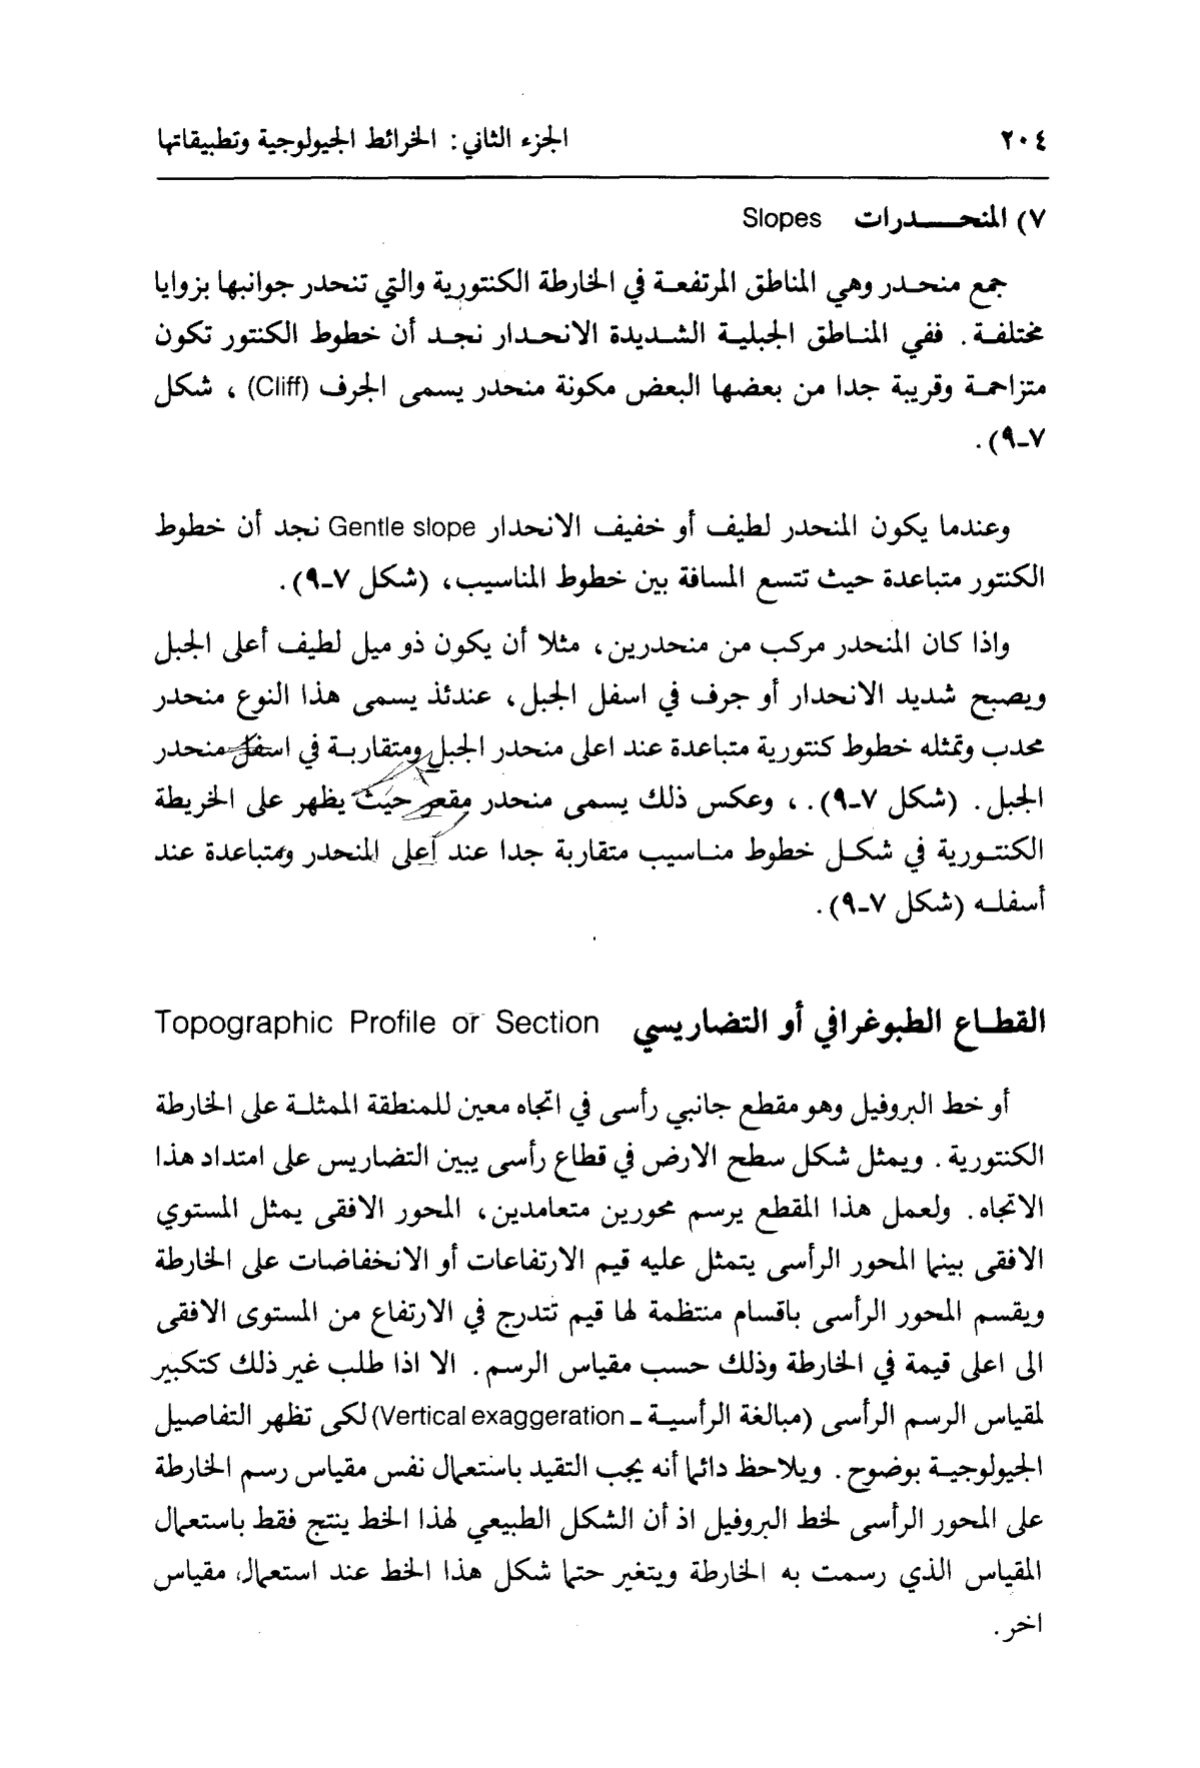 ٢٠٤ الجزء الثاني: الخرائط الجيولوجية وتطبيقاتها
٧) المنحـــدرات Slopes
جمع منحـدر وهي المناطق المرتفعـة في الخارطة الكنتورية والتي تنحدر جوانبها بزوايا
مختلفـة . ففي المنـاطق الجبليـة الشـديدة الانحـدار نجـد أن خطوط الكنتور تكون
متزاحمـة وقريبة جدا من بعضها البعض مكونة منحدر يسمى الجرف (Cliff) ، شكل
٧-٩) .
وعندما يكون المنحدر لطيف أو خفيف الانحدار Gentle slope نجد أن خطوط
الكنتور متباعدة حيث تتسع المسافة بين خطوط المناسيب، (شكل ٧-٩) .
واذا كان المنحدر مركب من منحدرين ، مثلا أن يكون ذو ميل لطيف أعلى الجبل
ويصبح شديد الانحدار أو جرف في اسفل الجبل، عندئذ يسمى هذا النوع منحدر
محدب وتمثله خطوط كنتورية متباعدة عند اعلى منحدر الجبل ومتقاربـة في اسفل منحدر
الجبل . (شكل ٧-٩) . ، وعكس ذلك يسمى منحدر مقعر حيث يظهر على الخريطة
الكنتـورية في شكـل خطوط منـاسيب متقاربة جدا عند أعلى المنحدر ومتباعدة عند
أسفلـه (شكل ٧-٩) .
القطـاع الطبوغرافي أو التضاريسي Topographic Profile or Section
أو خط البروفيل وهو مقطع جانبي رأسى في اتجاه معين للمنطقة الممثلـة على الخارطة
الكنتورية . ويمثل شكل سطح الارض في قطاع رأسى يبين التضاريس على امتداد هذا
الاتجاه. ولعمل هذا المقطع يرسم محورين متعامدين، المحور الافقى يمثل المستوي
الافقى بينما المحور الرأسى يتمثل عليه قيم الارتفاعات أو الانخفاضات على الخارطة
ويقسم المحور الرأسى باقسام منتظمة لها قيم تتدرج في الارتفاع من المستوى الافقى
الى اعلى قيمة في الخارطة وذلك حسب مقياس الرسم . الا اذا طلب غير ذلك كتكبير
لمقياس الرسم الرأسى (مبالغة الرأسيـة - Vertical exaggeration) لكى تظهر التفاصيل
الجيولوجيـة بوضوح . ويلاحظ دائما أنه يجب التقيد باستعمال نفس مقياس رسم الخارطة
على المحور الرأسى لخط البروفيل اذ أن الشكل الطبيعي لهذا الخط ينتج فقط باستعمال
المقياس الذي رسمت به الخارطة ويتغير حتما شكل هذا الخط عند استعمال مقياس
اخر .